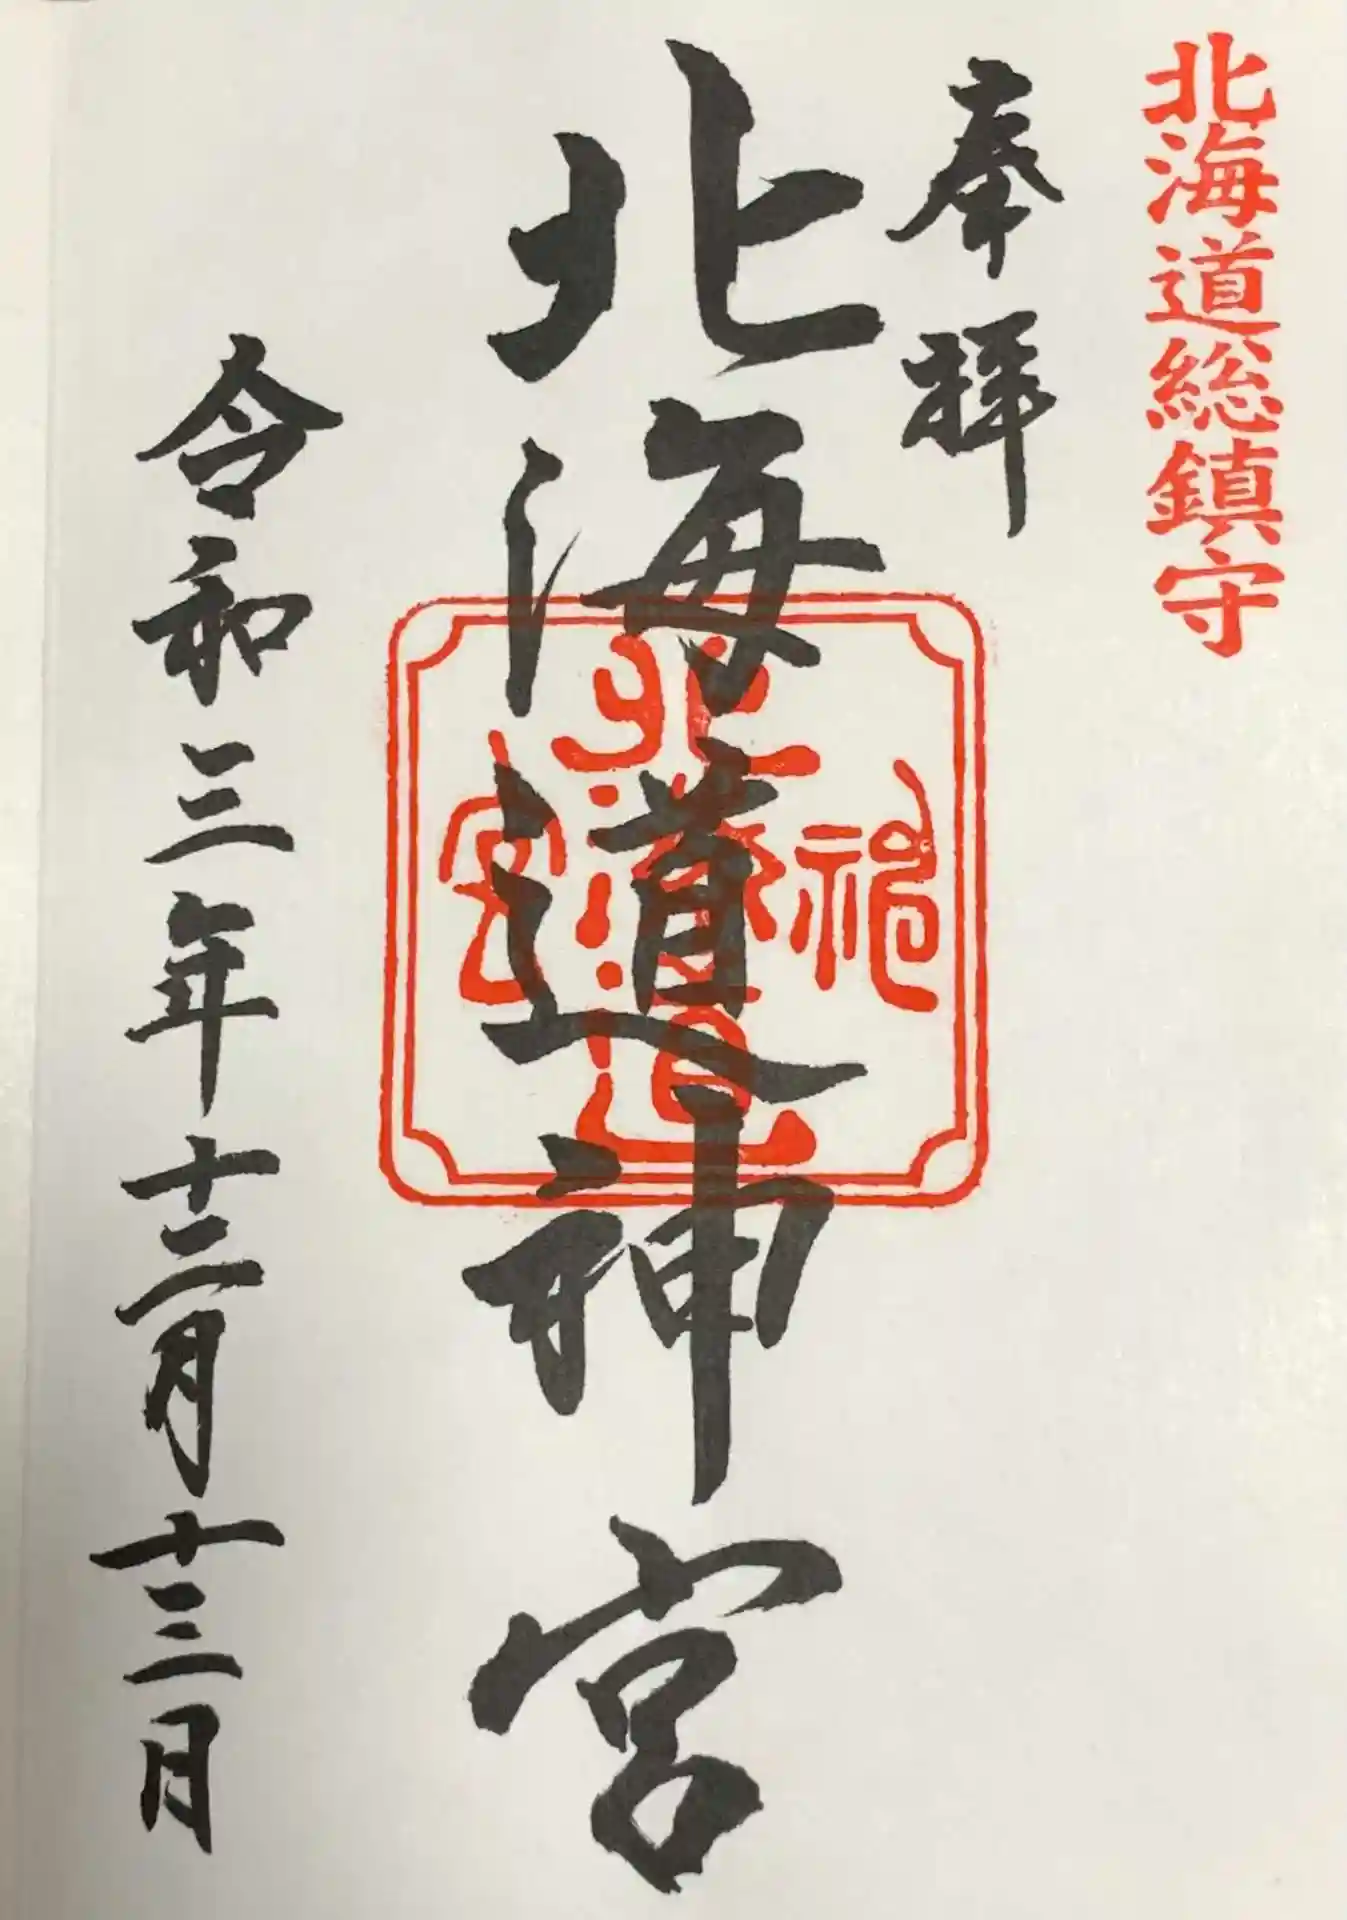 北海道総鎮守
奉拝
北海道神宮
令和三年十二月十三日